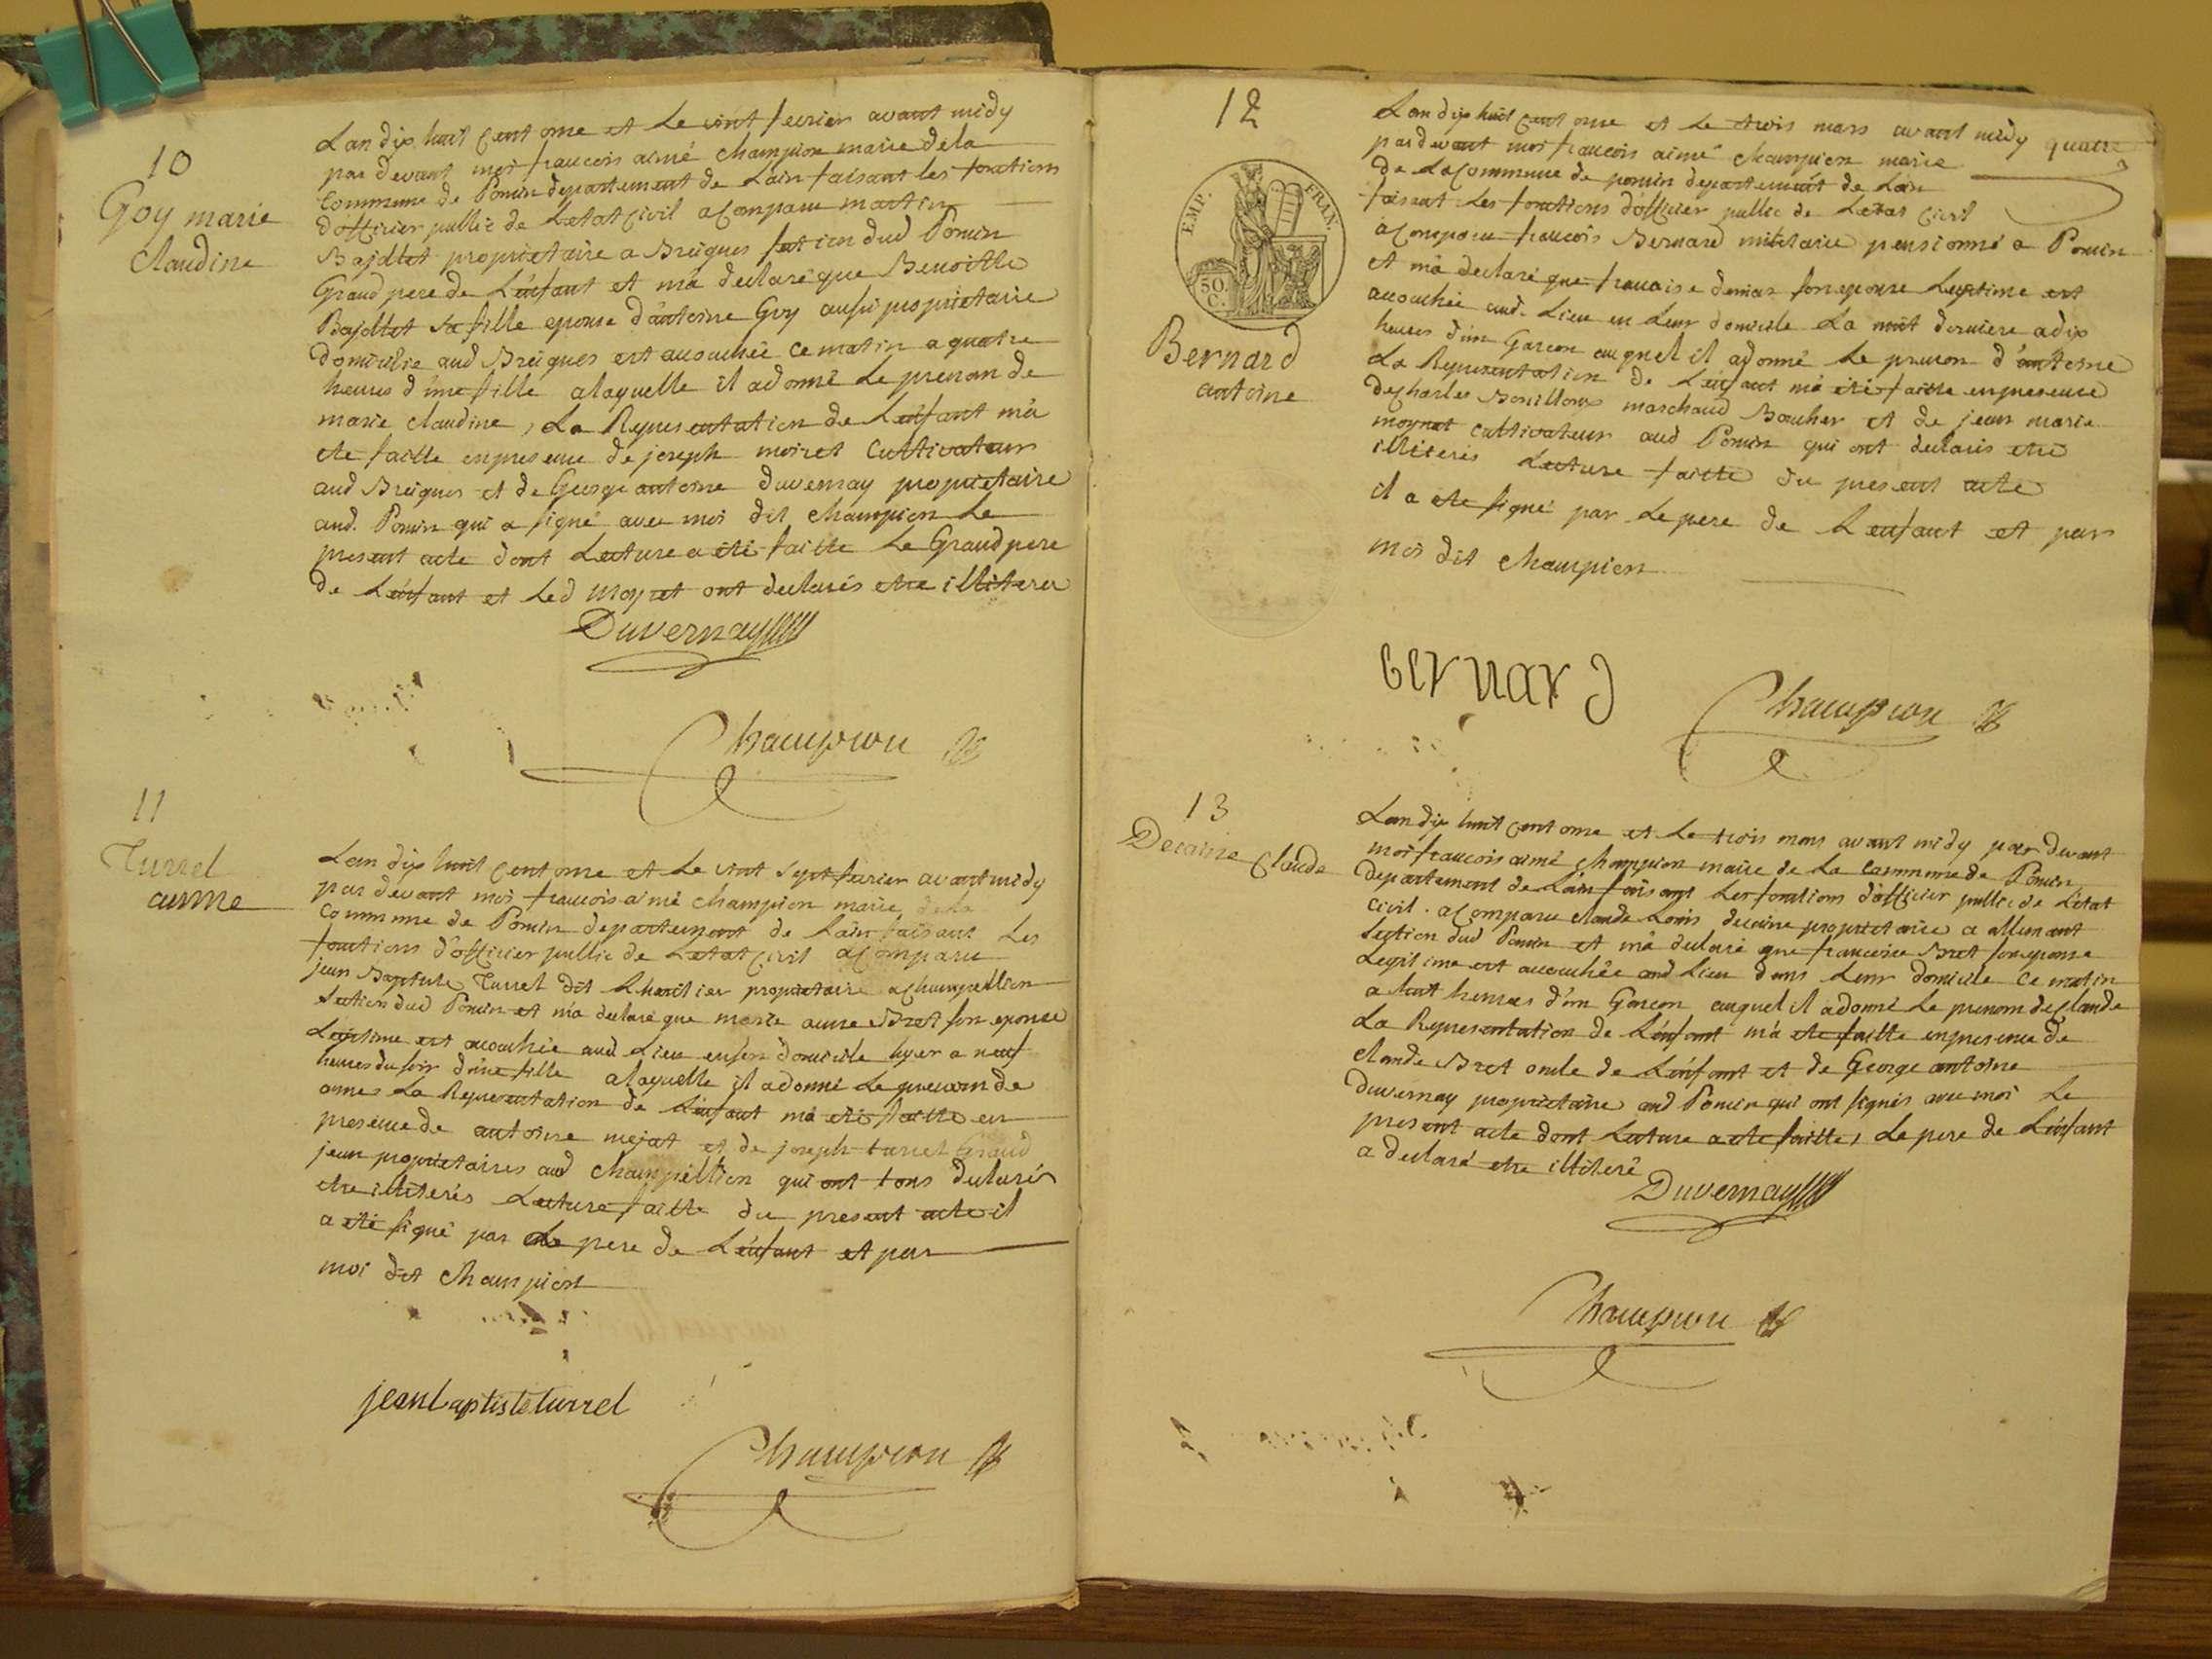 10
Goy marie
claudine
Lan dix huit cent onze et le vint fevrier avant midy
par devant moi francois aimé champion maire de la
Commune de Poncin departement de Lain faisant les fonctions
dofficier public de Letat civil a Comparu martin
Bajollet proprietaire a Breignes section dud Poncin
Grand pere de Lenfant et ma declaré que Benoitte
Bajollet sa fille epouse d'antoine Goy aussi proprietaire
domicilié aud Breignes est acouchée ce matin a quatre
heures d'une fille a laquelle il a donné le prenom de
marie claudine, La Representation de Lenfant m'a
ete faitte en presence de joseph moiret Cultivateur
aud Breignes et de George antoine duvernay proprietaire
aud. Poncin qui a signé avec moi dit champion le
present acte dont Lecture a été faitte le Grand pere
de Lenfant et led moyret ont declarés etre illiteré
Duvernay
Champion
11
Turrel
anne
Lan dix huit cent onze et le vint sept fevrier avant midy
par devant moi francois aimé champion maire de la
commune de Poncin departement de Lain faisant les
fonctions d'officier public de Letat civil a Comparu
jean Baptiste Turrel dit Lheritier proprietaire a champeillon
section dud Poncin et m'a declaré que marie anne Bret son epouse
Legitime est acouchée aud Lieu en son domicile hyer a neuf
heures du soir d'une fille a laquelle il a donné le prenom de
anne La Representation de Lenfant m'a été faitte en
presence de antoine mejat et de joseph turrel Grand
jean proprietaires aud champeillon qui ont tous declarés
etre illiterés Lecture faitte du present acte il
a eté signé par le pere de Lenfant et par
moi dit champion
jean baptiste turrel
Champion
12
EMP. FRAN.
50. C.
Bernard
antoine
Lan dix huit cent onze et le trois mars avant midy quatre
par devant moi francois aimé champion maire
de la Commune de poncin departement de Lain
faisant les fonctions dofficier public de Letat civil
a Comparu francois Bernard militaire pensionné a Poncin
et m'a declaré que francoise son epouse Legitime est
acouchée aud. Lieu en Leur domicile La nuit derniere a dix
heures d'un Garcon auquel il a donné le prenom d'antoine
La Representation de Lenfant m'a eté faitte en presence
de charles Bouilloux marchand Boucher et de jean marie
moynet cultivateur aud Poncin qui ont declarés etre
illiterés Lecture faitte du present acte
il a ete signé par le pere de Lenfant et par
moi dit champion
bernard
Champion
13
Decaine Claude
Lan dix huit cent onze et le trois mars avant midy par devant
moi francois aimé champion maire de la commune de Poncin
departement de Lain faisant les fonctions d'officier public de Letat
civil. a Comparu claude Louis decaine proprietaire a allement
section dud Poncin et m'a declaré que francoise Bret son epouse
Legitime est acouchée aud Lieu dans Leur domicile ce matin
a huit heures d'un Garcon auquel il a donné le prenom de claude
La Representation de Lenfant m'a ete faitte en presence de
claude Bret oncle de Lenfant et de George antoine
duvernay proprietaire aud Poncin qui ont signés avec moi le
present acte dont Lecture a ete faitte, Le pere de Lenfant
a declaré etre illiteré
Duvernay
Champion